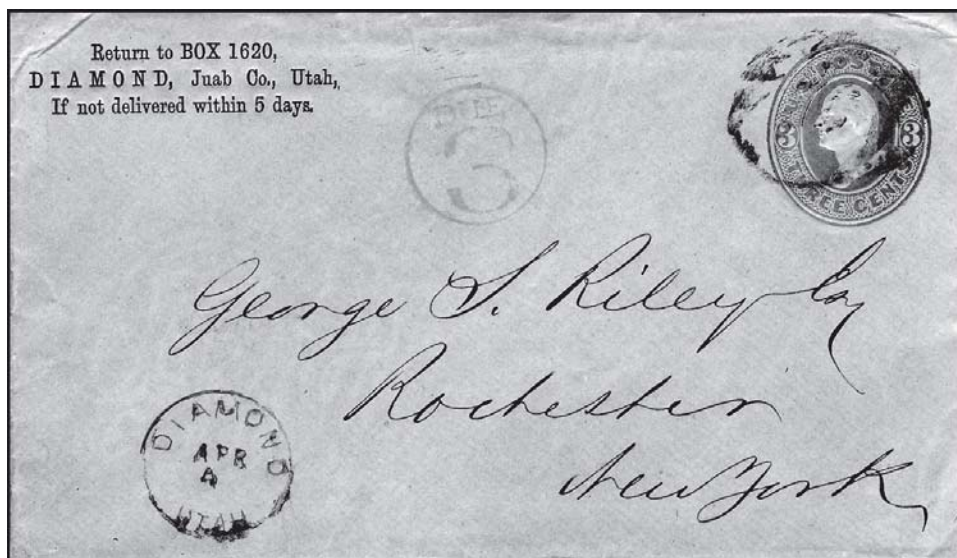 Return to BOX 1620,
DIAMOND, Juab Co., Utah,
If not delivered within 5 days.
DUE
3
U.S. POSTAGE
3 3
THREE CENTS
George S. Riley Esq
Rochester
New York
DIAMOND
APR
4
UTAH